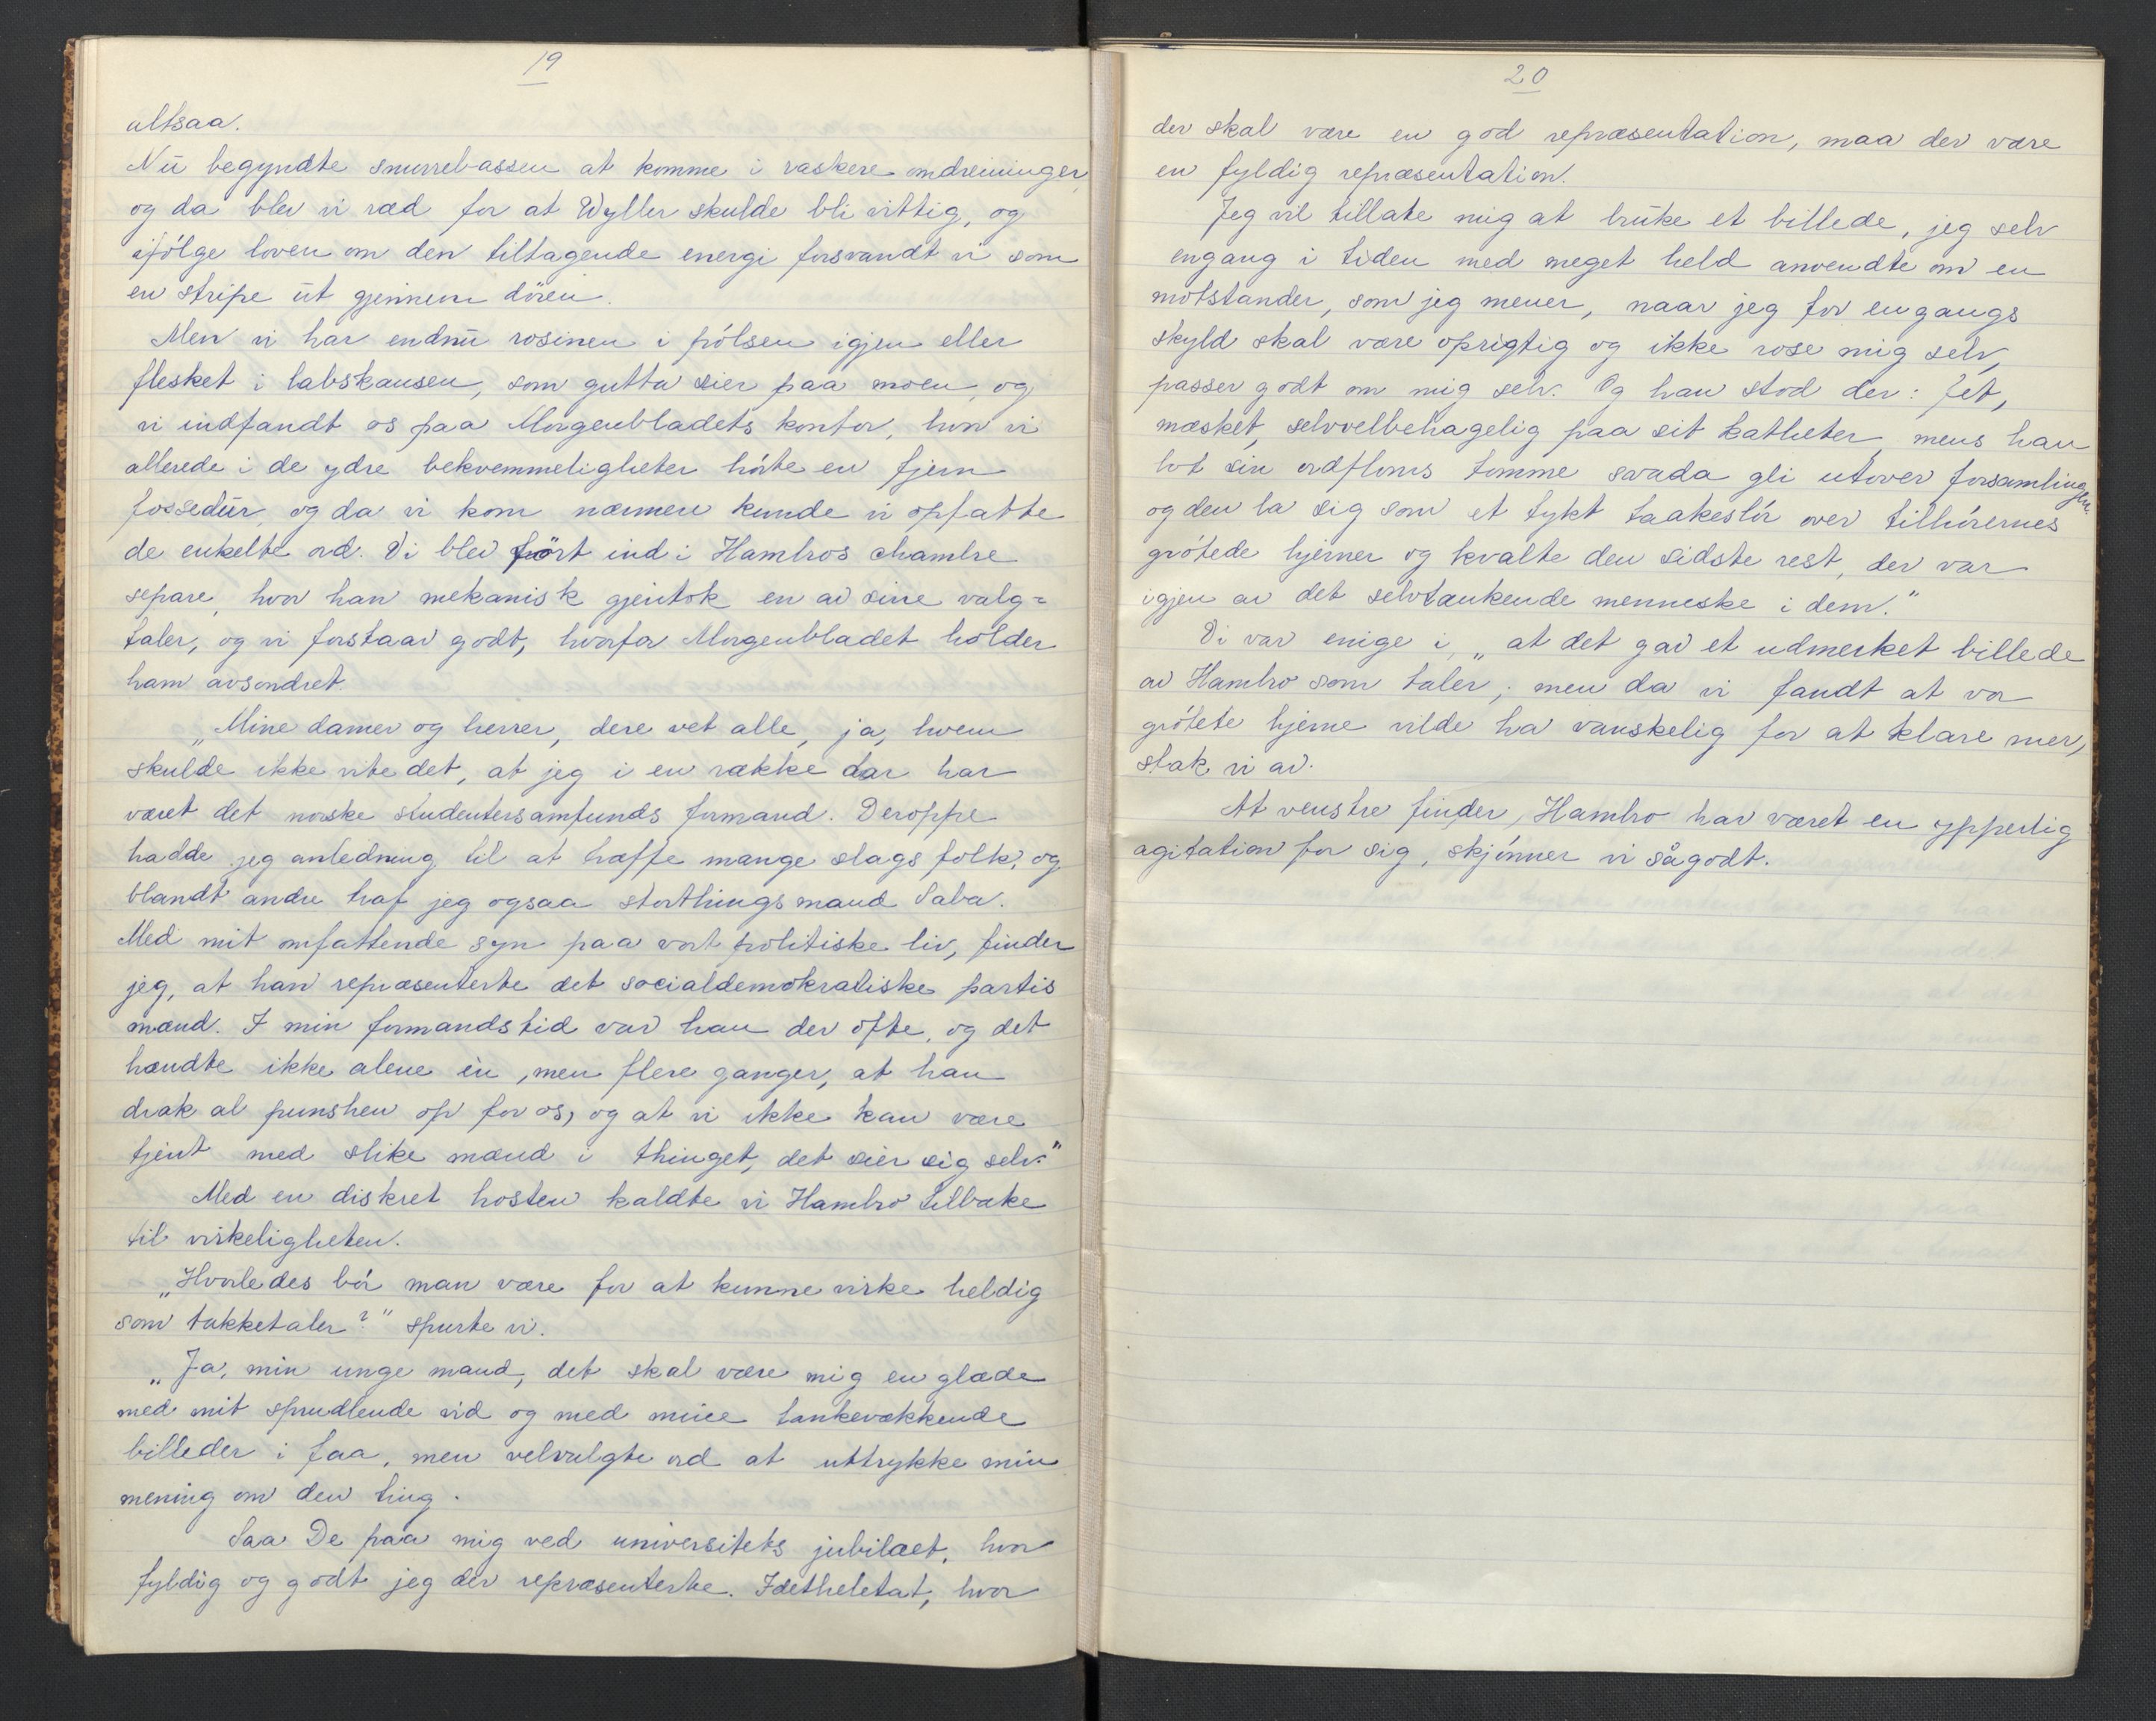 19
altsaa.
Nu begyndte snurrebassen at komme i raskere omdreininger,
og da blev vi ræd for at Wyller skulde bli vittig, og
ifólge loven om den tiltagende energi forsvandt vi som
en stripe ut gjennem dören.
Men vi har endnu rosinen i pólsen igjen eller
flesket i labskausen, som gutta sier paa moen, og
vi indfandt os paa Morgenbladets kontor, hvor vi
allerede i de ydre bekvemmeligheter hórte en fjern
fossedur, og da vi kom nærmere kunde vi opfatte
de enkelte ord. Vi blev fört ind i Hambros chambre
separe, hvor han mekanisk gjentok en av sine valg=
taler, og vi forstaar godt, hvorfor Morgenbladet holder
ham avsondret.
„Mine damer og herrer, dere vet alle, ja, hvem
skulde ikke vite det, at jeg i en række aar har
været det norske studentersamfunds formand. Deroppe
hadde jeg anledning til at træffe mange slags folk, og
blandt andre traf jeg ogsaa storthingsmand Saba.
Med mit omfattende syn paa vort politiske liv, finder
jeg, at han repræsenterte det socialdemokratiske partis
mænd. I min formandstid var han der ofte, og det
hændte ikke alene én, men flere ganger, at han
drak al punshen op for os, og at vi ikke kan være
tjent med slike mænd i thinget, det sier sig selv."
Med en diskret hosten kaldte vi Hambro tilbake
til virkeligheten.
„Hvorledes bór man være for at kunne virke heldig
som takketaler?" spurte vi.
„Ja, min unge mand, det skal være mig en glæde
med mit sprudlende vid og med mine tankevækkende
billeder i faa, men velvalgte ord at uttrykke min
mening om den ting.
Saa De paa mig ved universitets jubilæet, hvor
fyldig og godt jeg der repræsenterte. Idetheletat, hvor
20
der skal være en god repræsentation, maa der være
en fyldig repræsentation.
Jeg vil tillate mig at bruke et billede, jeg selv
engang i tiden med meget held anvendte om en
motstander, som jeg mener, naar jeg for engangs
skyld skal være oprigtig og ikke rose mig selv,
passer godt om mig selv. Og han stod der: fet,
mæsket, selvvelbehagelig paa sit katheter, mens han
lot sin ordfloms tomme svada gli utover forsamlingen
og den la sig som et tykt taakeslór over tilhórernes
grótede hjerner og kvalte den sidste rest, der var
igjen av det selvtænkende menneske i dem."
Vi var enige i, „at det gav et udmerket billede
av Hambro som taler; men da vi fandt at vor
grótete hjerne vilde ha vanskelig for at klare mer,
stak vi av.
At venstre finder, Hambro har været en ypperlig
agitation for sig, skjónner vi sågodt.